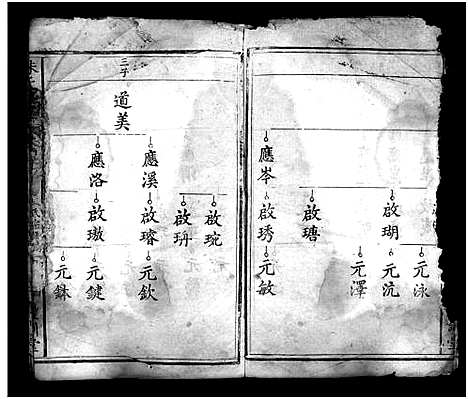 應岑
啟瑚
啟瑭
啟琇
元泳
元沆
元澤
元敏
三子
道美
應溪
應洛
啟琬
啟珘
啟璿
啟璈
元欽
元鍵
元銖